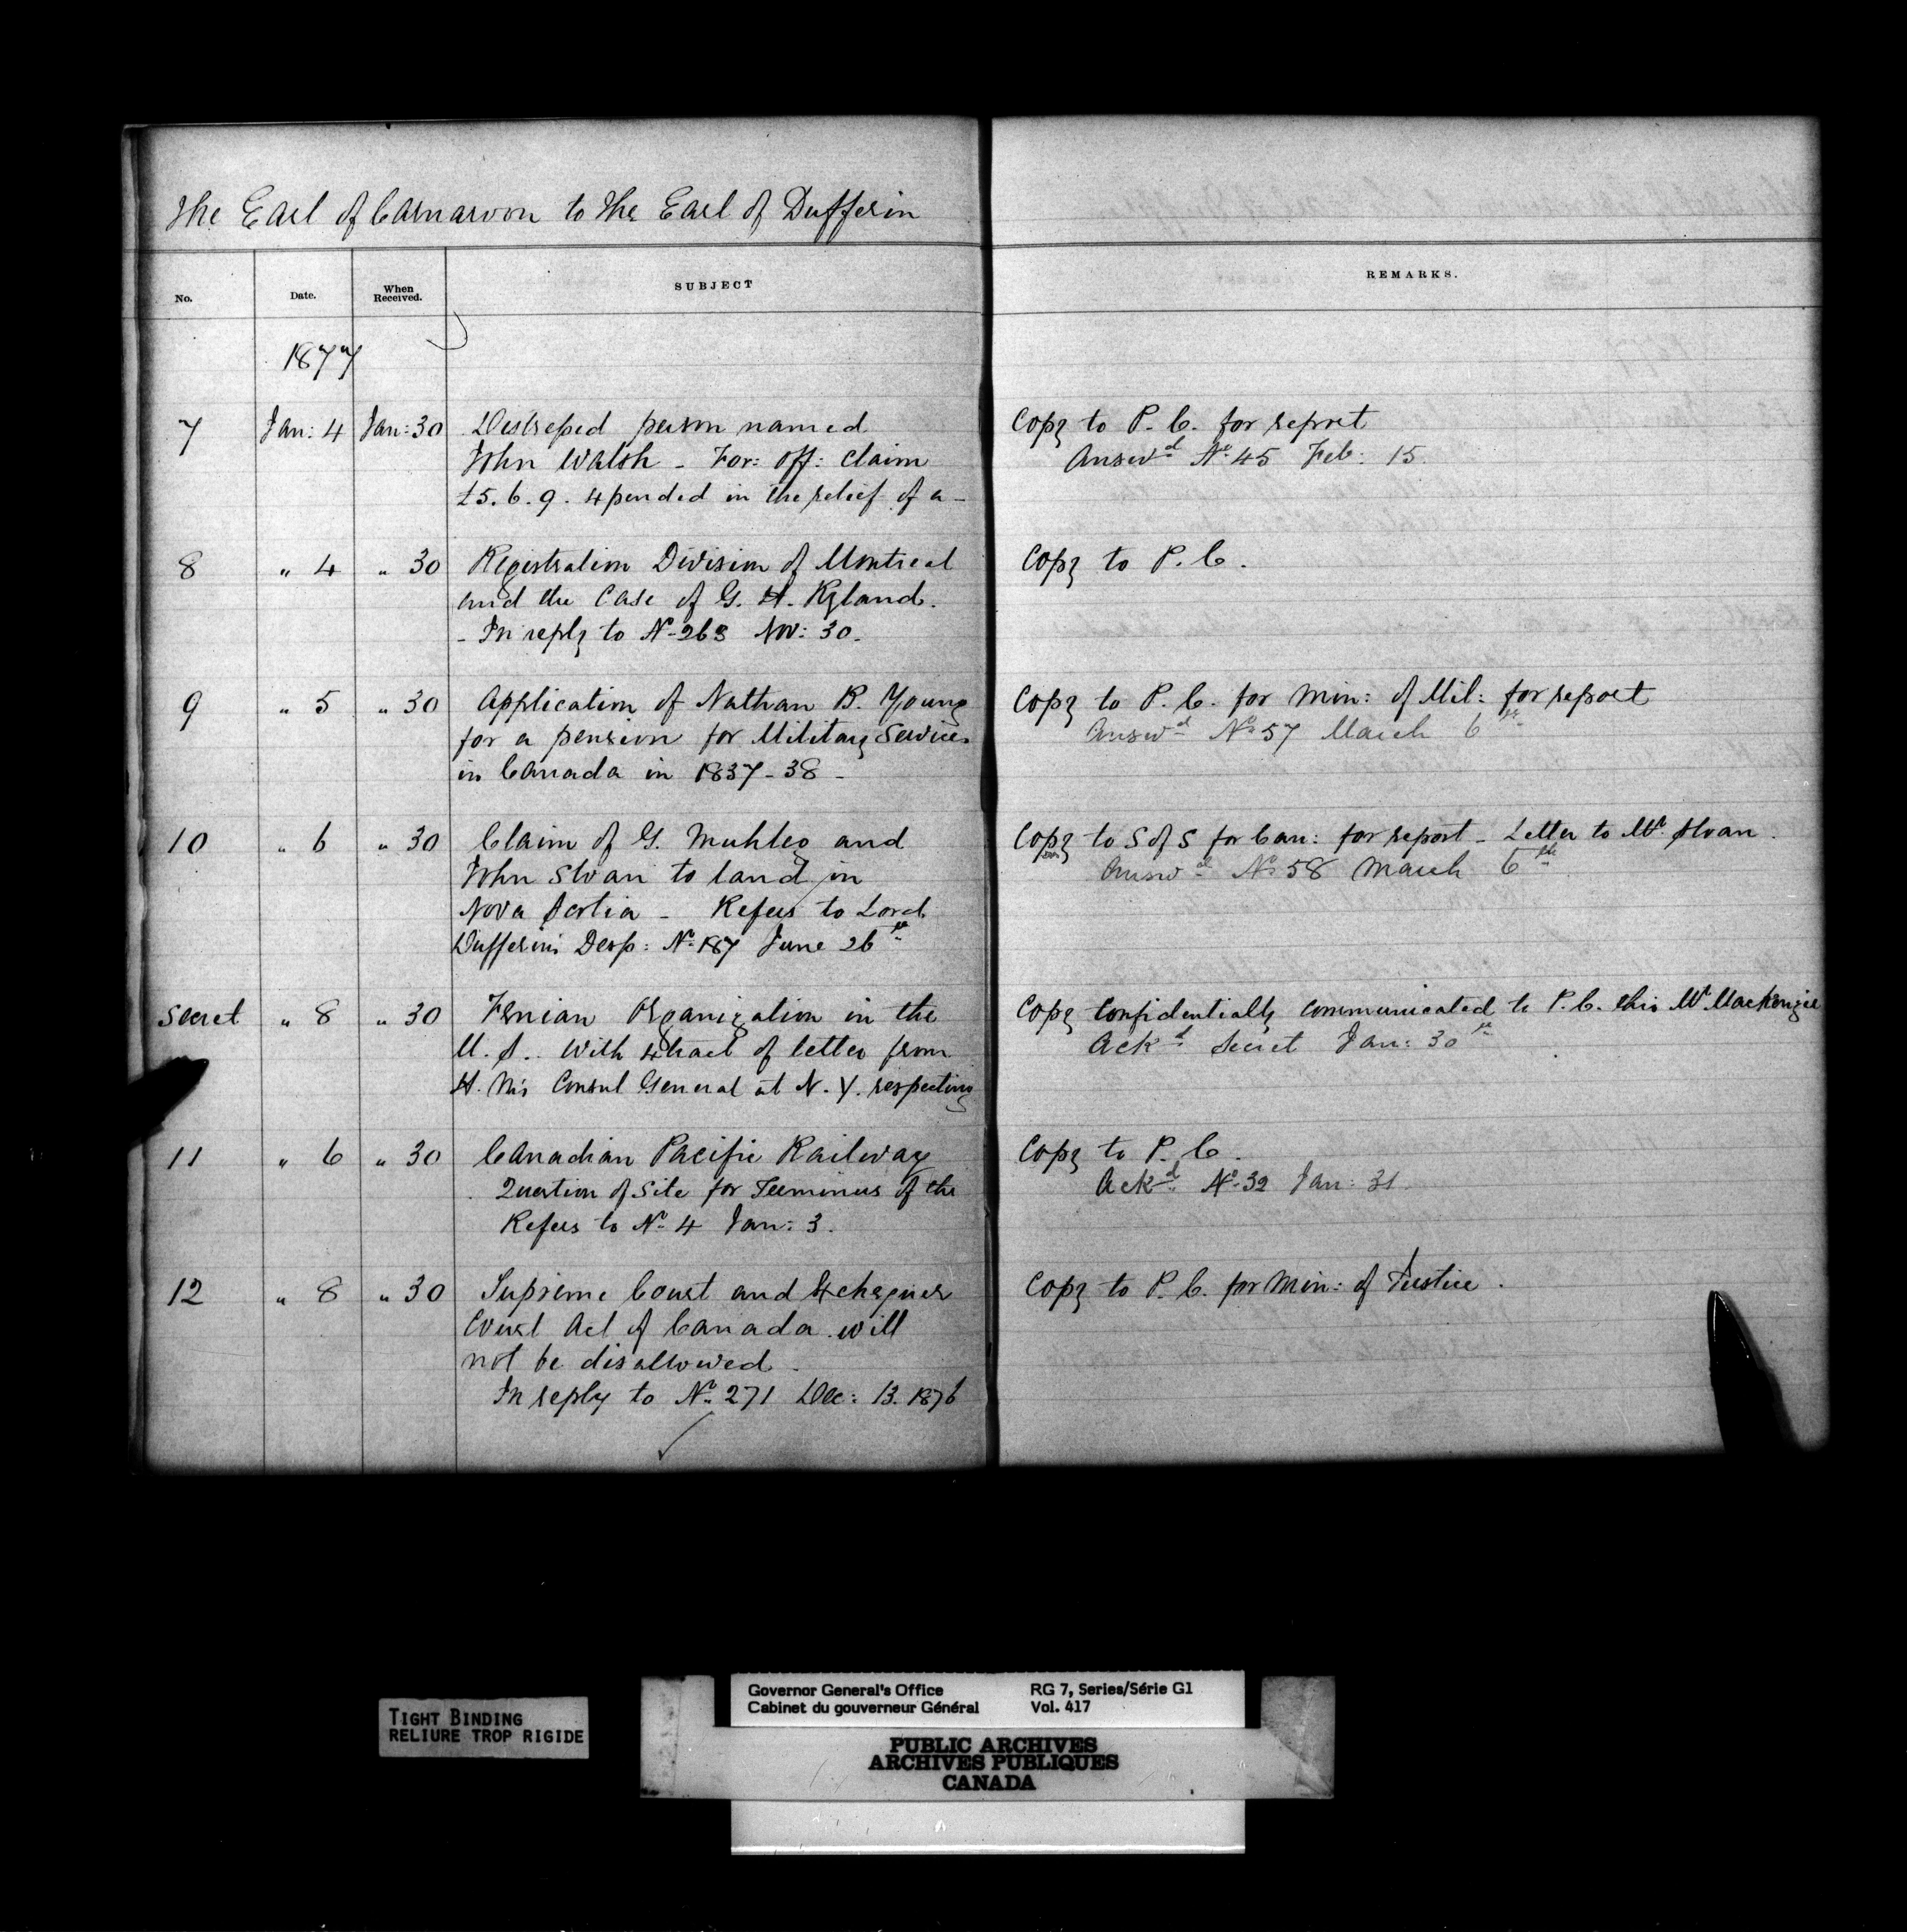 The Earl of Carnarvon to the Earl of Dufferin
No. Date. When Received. SUBJECT REMARKS.
1877
7 Jan: 4 Jan: 30 Distressed person named Copy to P. C. for report
John Walsh - For: Off: claim Answd No 45 Feb: 15
£5. 6. 9. expended in the relief of a -
8 " 4 " 30 Registration Division of Montreal Copy to P. C.
and the case of G. H. Ryland.
- In reply to No 263 Nov: 30 -
9 " 5 " 30 Application of Nathan B. Young Copy to P. C. for Min: of Mil: for report
for a pension for Military Services Answd No 57 March 6th
in Canada in 1837-38 -
10 " 6 " 30 Claim of G. and Copy to S of S for Can: for report - Letter to Mr Sloan.
John Sloan to land in Answd No 58 March 6th
Nova Scotia - Refers to Lord
Dufferin's Desp: No 187 June 26th
Secret " 8 " 30 Fenian Organization in the Copy confidentially communicated to P. C. thro Mr Mackenzie
U. S. With extract of letter from Ackd Secret Jan: 30th
H. M's Consul General at N. Y. respecting
11 " 6 " 30 Canadian Pacific Railway Copy to P. C.
Question of site for Terminus of the Ackd No 32 Jan: 31
Refers to No 4 Jan: 3.
12 " 8 " 30 Supreme Court and Exchequer Copy to P. C. for Min: of Justice.
Court Act of Canada will
not be disallowed -
In reply to No 271 Dec: 13. 1876
TIGHT BINDING
RELIURE TROP RIGIDE
Governor General's Office RG 7, Series/Série G1
Cabinet du gouverneur Général Vol. 417
PUBLIC ARCHIVES
ARCHIVES PUBLIQUES
CANADA